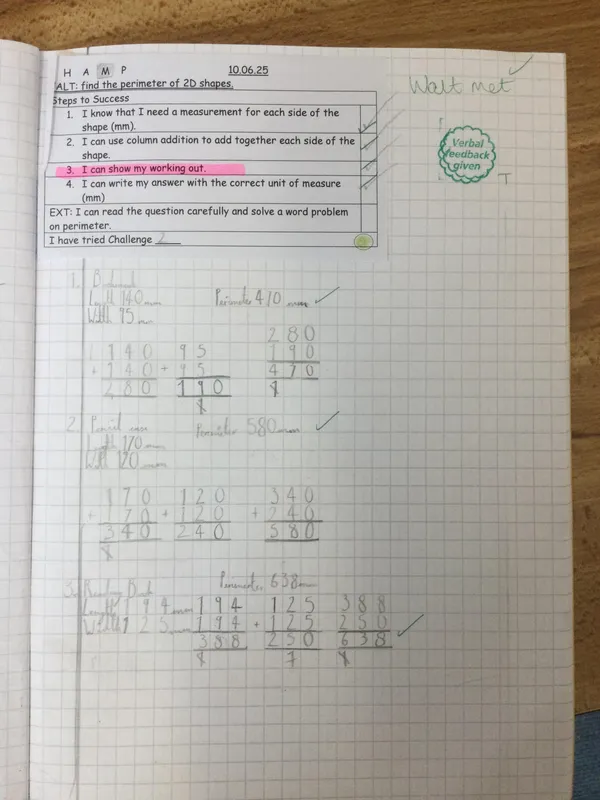 H A M P 10.06.25
ALT: find the perimeter of 2D shapes.
Steps to Success
1. I know that I need a measurement for each side of the
shape (mm).
2. I can use column addition to add together each side of the
shape.
3. I can show my working out.
4. I can write my answer with the correct unit of measure
(mm)
EXT: I can read the question carefully and solve a word problem
on perimeter.
I have tried Challenge 2
Walt met
Verbal
feedback
given
T
1.
Length 140mm Perimeter 410 mm
Width 95 mm
280
140 95 190
+140 + 95 470
280 190 1
1
2. Pencil case Perimeter 580mm
Length 170mm
Width 120mm
170 120 340
+170 +120 +240
340 240 580
1
3. Reading Book Perimeter 638mm
Length 194mm 194 125 388
Width 125mm 194 +125 250
388 250 638
1 1 1